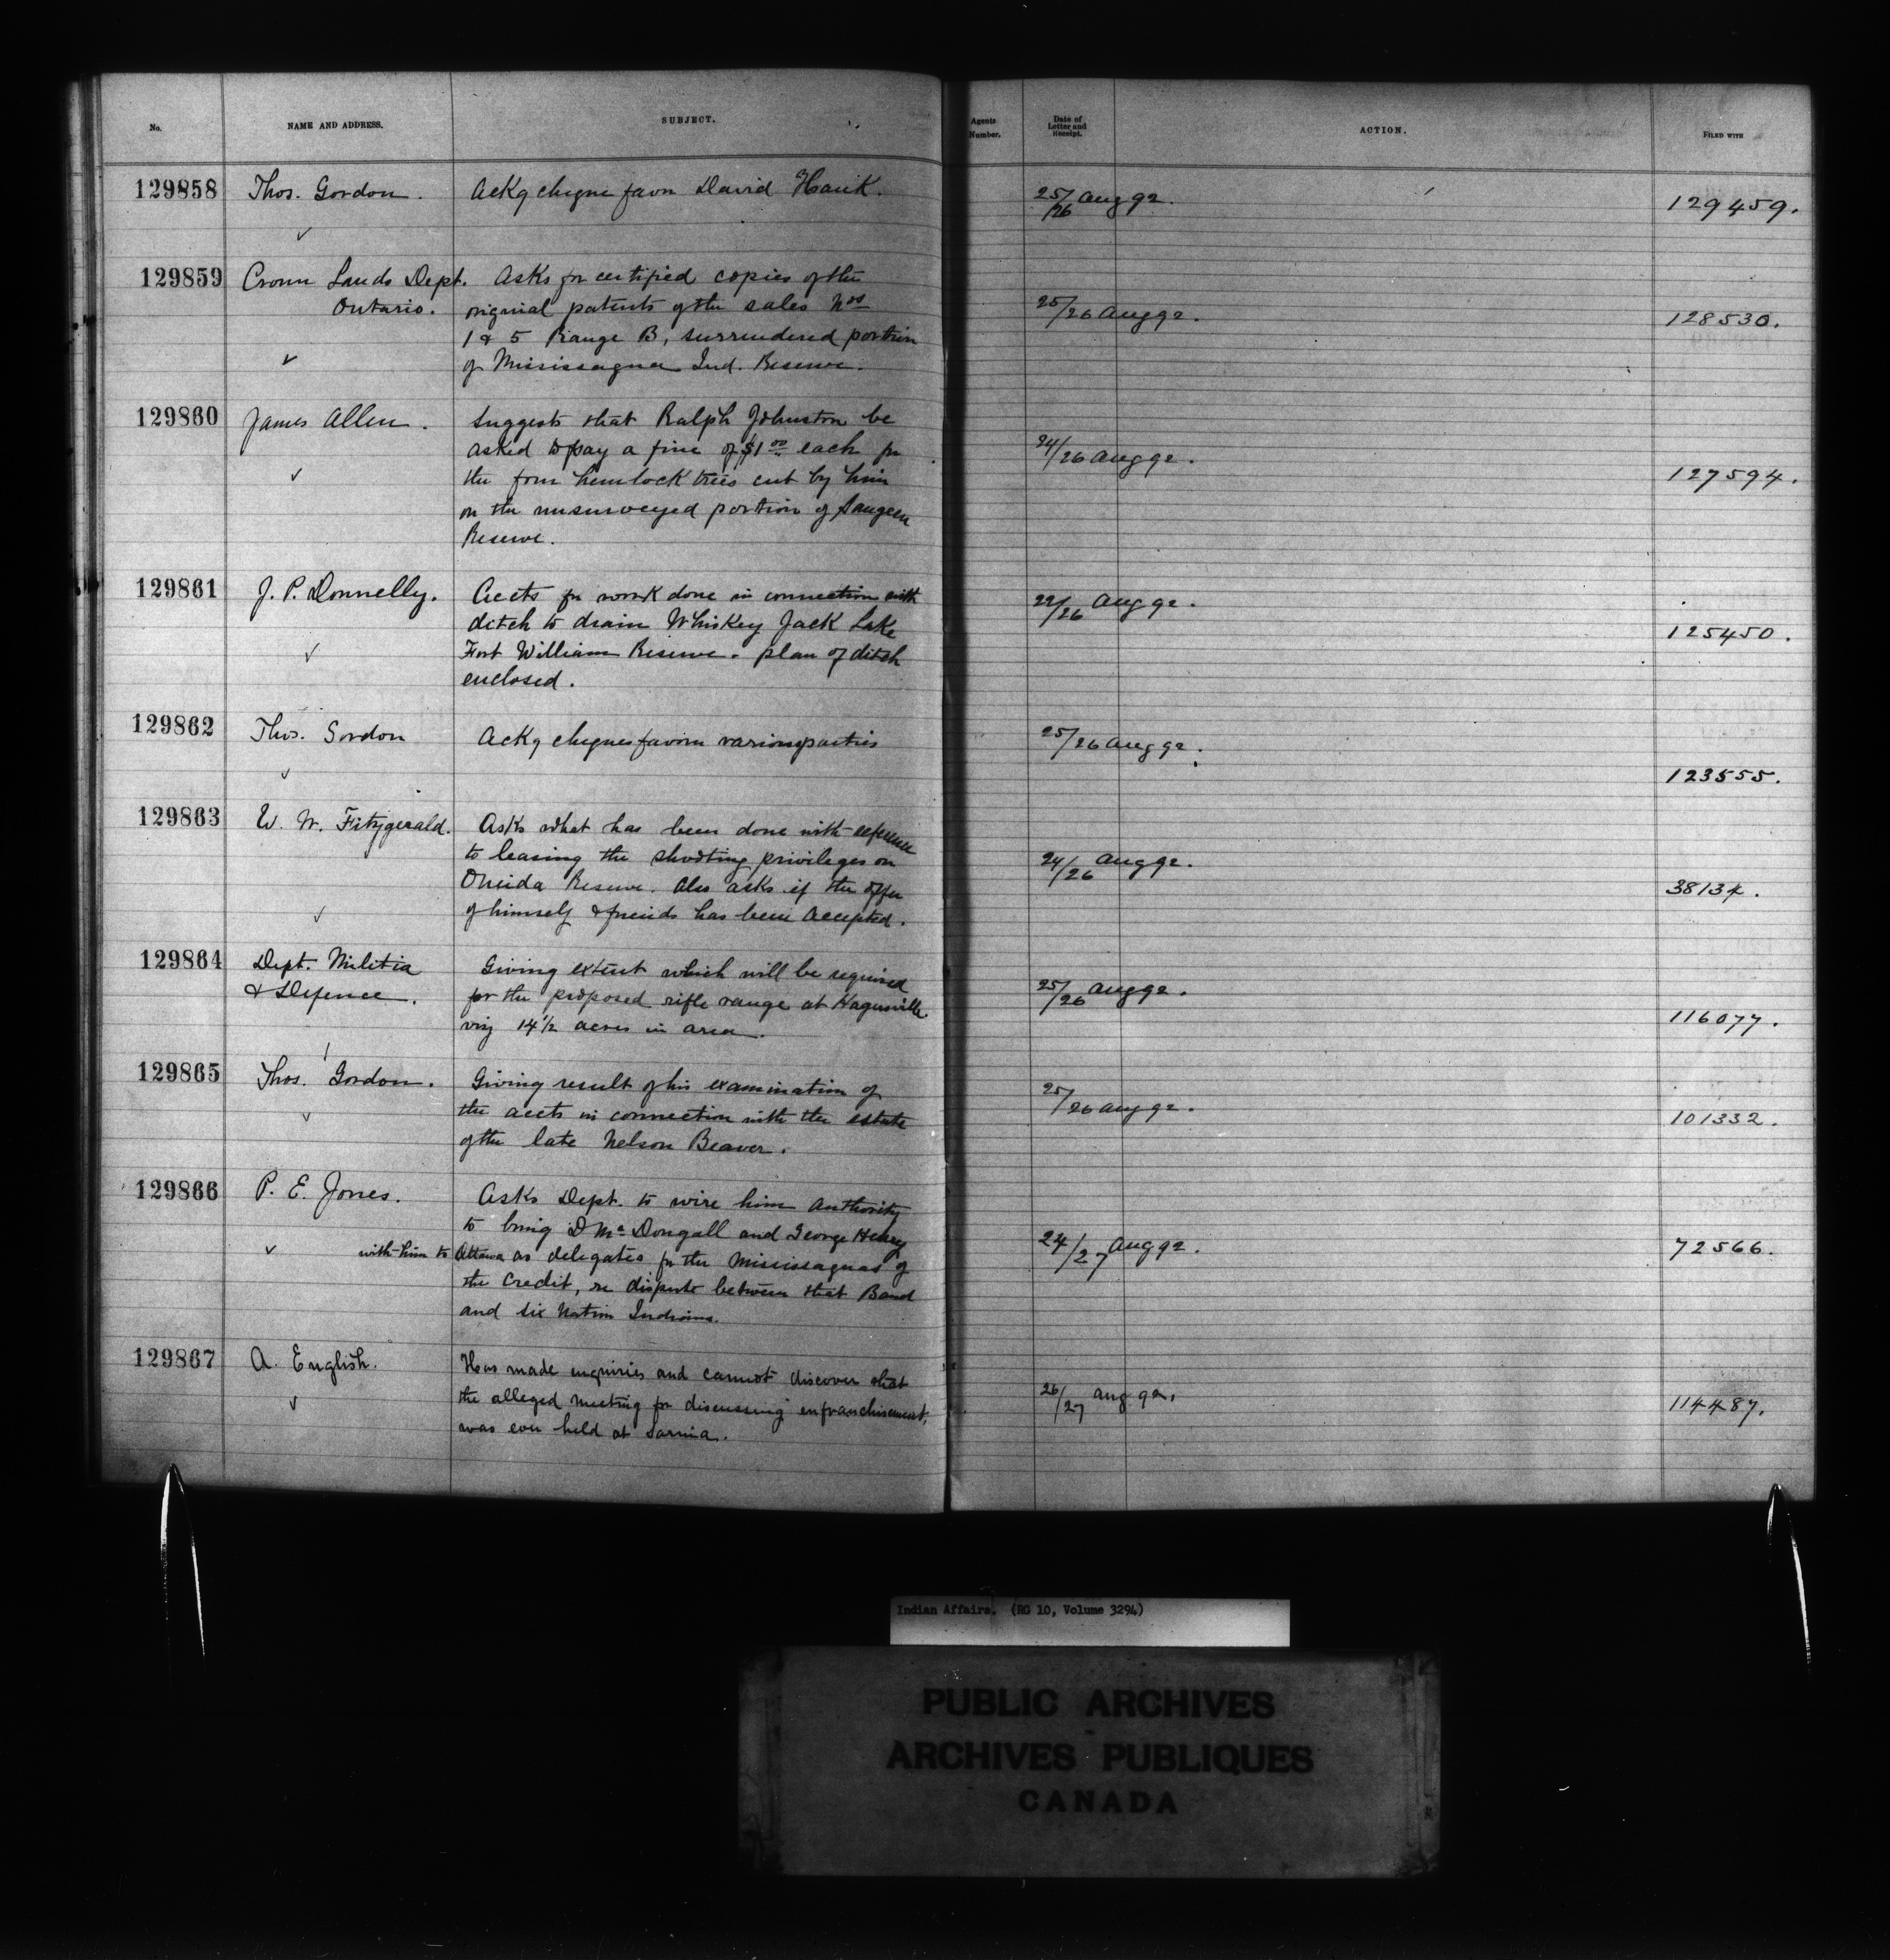 No.
NAME AND ADDRESS.
SUBJECT.
Agents
Number.
Date of
Letter and
Receipt.
ACTION.
FILED WITH
129858
Thos. Gordon.
Ackg cheque favor David Hauk.
25/26 Aug 92.
129459.
129859
Crown Lands Dept.
Ontario.
Asks for certified copies of the
original patents of the sales Nos
1 & 5 Range B, surrendered portion
of Mississagua Ind. Reserve.
25/26 Aug 92.
128530.
129860
James Allen.
Suggests that Ralph Johnston be
asked to pay a fine of $1 00 each for
the four hemlock trees cut by him
on the unsurveyed portion of Saugeen
Reserve.
24/26 Aug 92.
127594.
129861
J. P. Donnelly.
Accts for work done in connection with
ditch to drain Whiskey Jack Lake
Fort William Reserve. plan of ditch
enclosed.
22/26 Aug 92.
125450.
129862
Thos. Gordon
Ackg cheques favour various parties
25/26 Aug 92.
123555.
129863
W. W. Fitzgerald.
Asks what has been done with reference
to leasing the shooting privileges on
Oneida Reserve. Also asks if the offer
of himself & friends has been accepted.
24/26 Aug 92.
38134.
129864
Dept. Militia
& Defence.
Giving extent which will be required
for the proposed rifle range at Hagersville
viz 14 1/2 acres in area.
25/26 Aug 92.
116077.
129865
Thos. Gordon.
Giving result of his examination of
the accts in connection with the estate
of the late Nelson Beaver.
25/26 Aug 92.
101332.
129866
P. E. Jones.
Asks Dept. to wire him authority
to bring D McDougall and George Henry
with him to Ottawa as delegates for the Mississaguas of
the Credit, re dispute between that Band
and Six Nation Indians.
24/27 Aug 92.
72566.
129867
A. English.
Has made enquiries and cannot discover that
the alleged meeting for discussing enfranchisement,
was ever held at Sarnia.
26/27 Aug 92.
114487.
Indian Affairs. (RG 10, Volume 3294)
PUBLIC ARCHIVES
ARCHIVES PUBLIQUES
CANADA